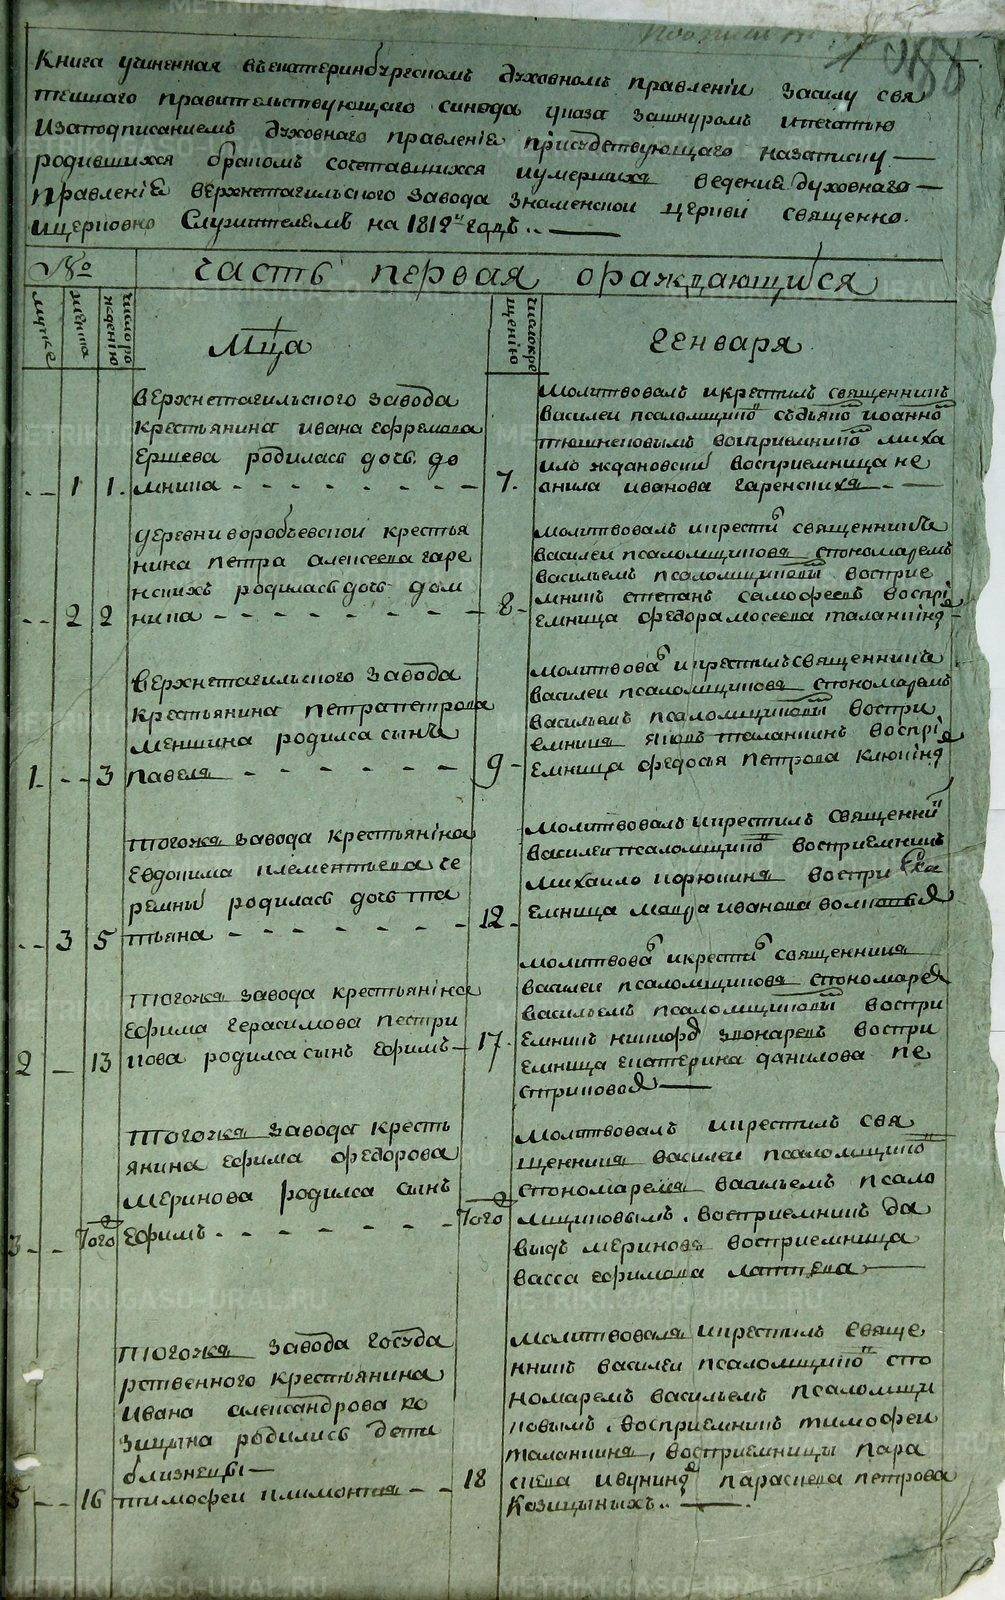 Книга учиненная въекатеринбургскомъ духовномъ правленіи засилу свя
тешшаго правительствующаго синода указа зашнуромъ ипечатью
Изаподписаниемъ духовнаго правленіе присудствующаго назаписку —
родившихся бракомъ сочетавшихся иумершихъ ведения духовнаго —
правленіе верхнетагильского завода знаменской церкви священно.
ицерковно служителемъ на 1812й годъ.. —
№ часть первая ораждающихся
мужска
женска
число ро
жденію
Мца
число кре
щенію
Генваря
верхнетагильского завода
крестьянина ивана ефремова
ершева родилась дочь до
- - 1 1. мника - - - - - - - -
7.
молитвовалъ икрестилъ священникъ
василеи псаломщико съдьяко иоанно
тюшнековымъ восприемнико миха
ило ждановски восприемница не
онила иванова гаренскихъ - —
деревни воробъевскои крестья
нина петра алексеева гаре
нскихъ родилась дочь дом
- - 2 2 ника - - - - - - - -
8-
молитвовалъ икрести священникъ
василеи псаломщиковъ спономаремъ
васильемъ псаломщиковы восприе
мникъ степанъ самофеевъ воспрі
емница федора мосеева таланкинд
верхнетагильского завода
крестьянина петрапетрова
меншина родилса сынъ
1. - - 3 павелъ - - - - - - -
9-
молитвова икрестилъ священникъ
василеи псаломщиковъ спономаремъ
васильемъ псаломщиковы воспри
емникъ яковъ таланкинъ воспрі
емница федосья петрова клюкинд
тогожъ завода крестьяніна
евдокима клементьева че
ремны родилась дочь та
- - 3 5 тьяна - - - - - - - -
12-
молитвовалъ икрестилъ священни
василеи псаломщико восприемникъ
михаило корюкинъ воспри
емница мавра иванова волковыя
тогожъ завода крестьяніна
ефима герасимова пестри
2 - 13 кова родилса сынъ ефимъ -
17.
молитвова икрести священникъ
василеи псаломщиковъ спономаре
васильемъ псаломщиковы воспри
емникъ никифо звонаревъ воспри
емница екатерина данилова пе
стриковой —
тогожъ завода кресть
янина ефима федорова
меринова родилса сынъ
3 - - Того ефимъ - - - - - -
Того
молитвовалъ икрестилъ свя
щенникъ василеи псаломщико
спономаремъ васильемъ псало
мщиковымъ. восприемникъ да
выдъ мериновъ восприемница
васса ефимова лаптева —
тогожъ завода госуда
рственного крестьянина
ивана александрова ко
зицына родились дети
близнецы —
5 - - 16 тимофеи илимонтеи - -
18
молитвовалъ икрестилъ свяще
нникъ василеи псаломщико спо
номаремъ васильемъ псаломщи
ковымъ. восприемникъ тимофеи
таланкинъ, восприемницы пара
скева параскева петрова
козицыныхъ.. —
METRIKI.GASO-URAL.RU